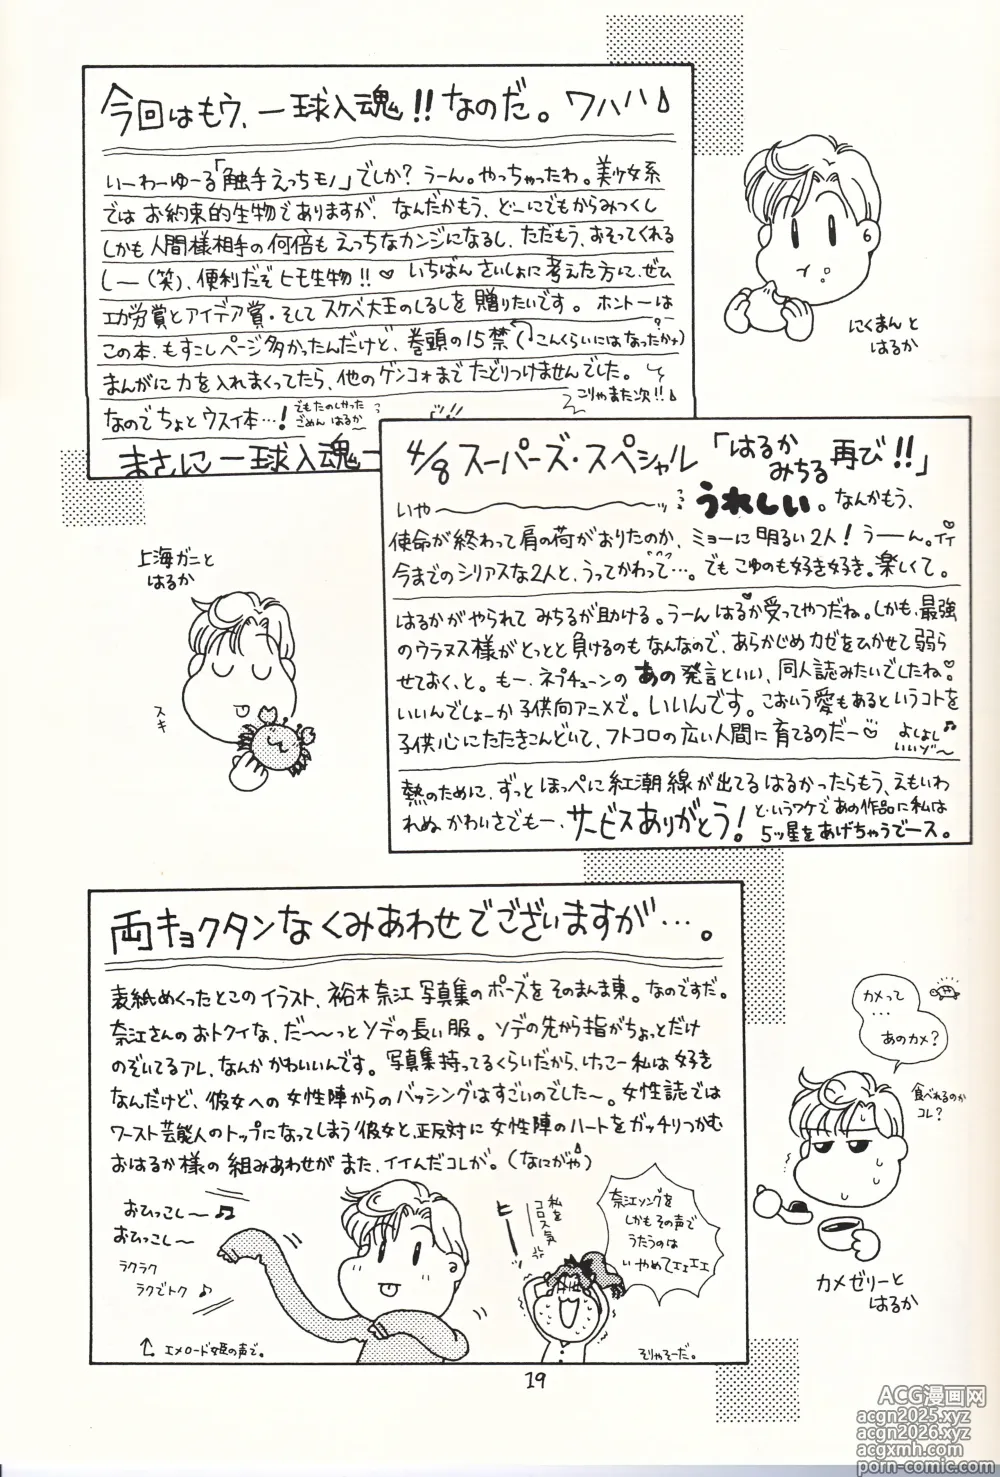 今回はもウ、一球入魂!!なのだ。ワハハ♪
いーわーゆーる「触手えっちモノ」でしか?うーん。やっちゃったわ。美少女系
ではお約束的生物でありますが、なんだかもう、どーにでもからみつくし
しかも人間様相手の何倍もえっちなカンジになるし、ただもう、おそってくれる
しー(笑)、便利だぞヒモ生物!!♡ いちばんさいしょに考えた方に、ぜひ
エガ労賞とアイデア賞・そしてスケベ大王のしるしを贈りたいです。ホントーは
この本、もすこしページ多かったんだけど、巻頭の15禁(こんくらいにはなったかナ?)
まんがに力を入れまくってたら、他のゲンコォまでたどりつけませんでした。
なのでちょとウスイ本…!
でもたのしかった
ごめん はるか
こりゃまた次!!♪
まさに一球入魂
にくまんと
はるか
4/8スーパーズ・スペシャル「はるかみちる再び!!」
いや〜ッ うれしい。なんかもう、
使命が終わって肩の荷がおりたのか、ミョーに明るい2人!うーん。イイ♡
今までのシリアスな2人と、うってかわって…。でもこゆのも好き好き。楽しくて。
はるかがやられてみちるが助ける。うーんはるか受ってやつだね。しかも、最強
のウラヌス様がとっとと負けるのもなんなので、あらかじめカゼをひかせて弱ら
せておく、と。もー、ネプチューンのあの発言といい、同人誌みたいでしたね♡
いいんでしょーか子供向アニメで。いいんです。こおいう愛もあるというコトを
子供心にたたきこんどいて、フトコロの広い人間に育てるのだー♡ よしよし いいゾ〜♫
熱のために、ずっとほっぺに紅潮線が出てるはるかったらもう、えもいわ
れぬかわいさでもー、サービスありがとう!
というワケであの作品に私は
5ッ星をあげちゃうでース。
上海ガニと
はるか
スキ
両キョクタンなくみあわせでございますが…。
表紙めくったとこのイラスト、裕木奈江写真集のポーズをそのまんま東。なのですだ。
奈江さんのおトクイな、だ〜〜っとソデの長い服。ソデの先から指がちょっとだけ
のぞいてるアレ、なんかかわいいんです。写真集持ってるくらいだから、けっこー私は好き
なんだけど、彼女への女性陣からのバッシングはすごいのでした〜。女性誌では
ワースト芸能人のトップになってしまう彼女と、正反対に女性陣のハートをガッチリつかむ
おはるか様の組みあわせがまた、イイんだコレが。(なにがや)
おひっこし〜♫
おひっこし〜
ラクラク
ラクでトク♪
↑エメロード姫の声で。
ヒーッ
私を
コロス気
奈江ソングを
しかもその声で
うたうのは
いやめてェェエエ
そりゃそーだ。
カメって
…
あのカメ?
食べれるのか
コレ?
カメゼリーと
はるか
19
ACG漫画网
acgn2025.xyz
acgn2026.xyz
acgxmh.com
porn-comic.com